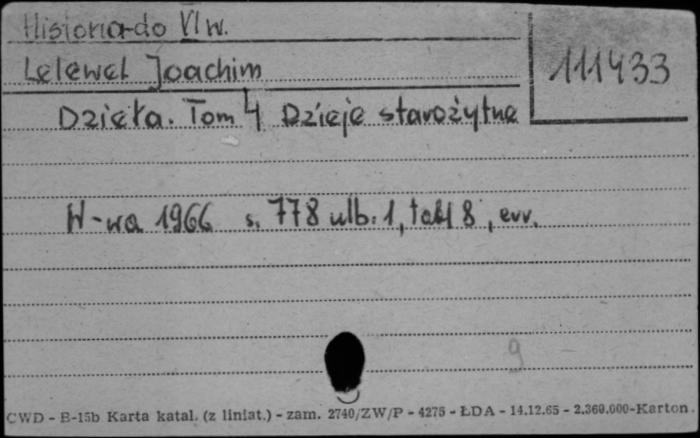 Historia do VI w.
Lelewel Joachim
111433
Dzieła. Tom 4 Dzieje starożytne
W-wa 1966 s. 778 ulb. 1, tabl 8, err.
9
CWD - B-15b Karta katal. (z liniat.) - zam. 2740/ZW/P - 4275 - ŁDA - 14.12.65 - 2.360.000-Karton.